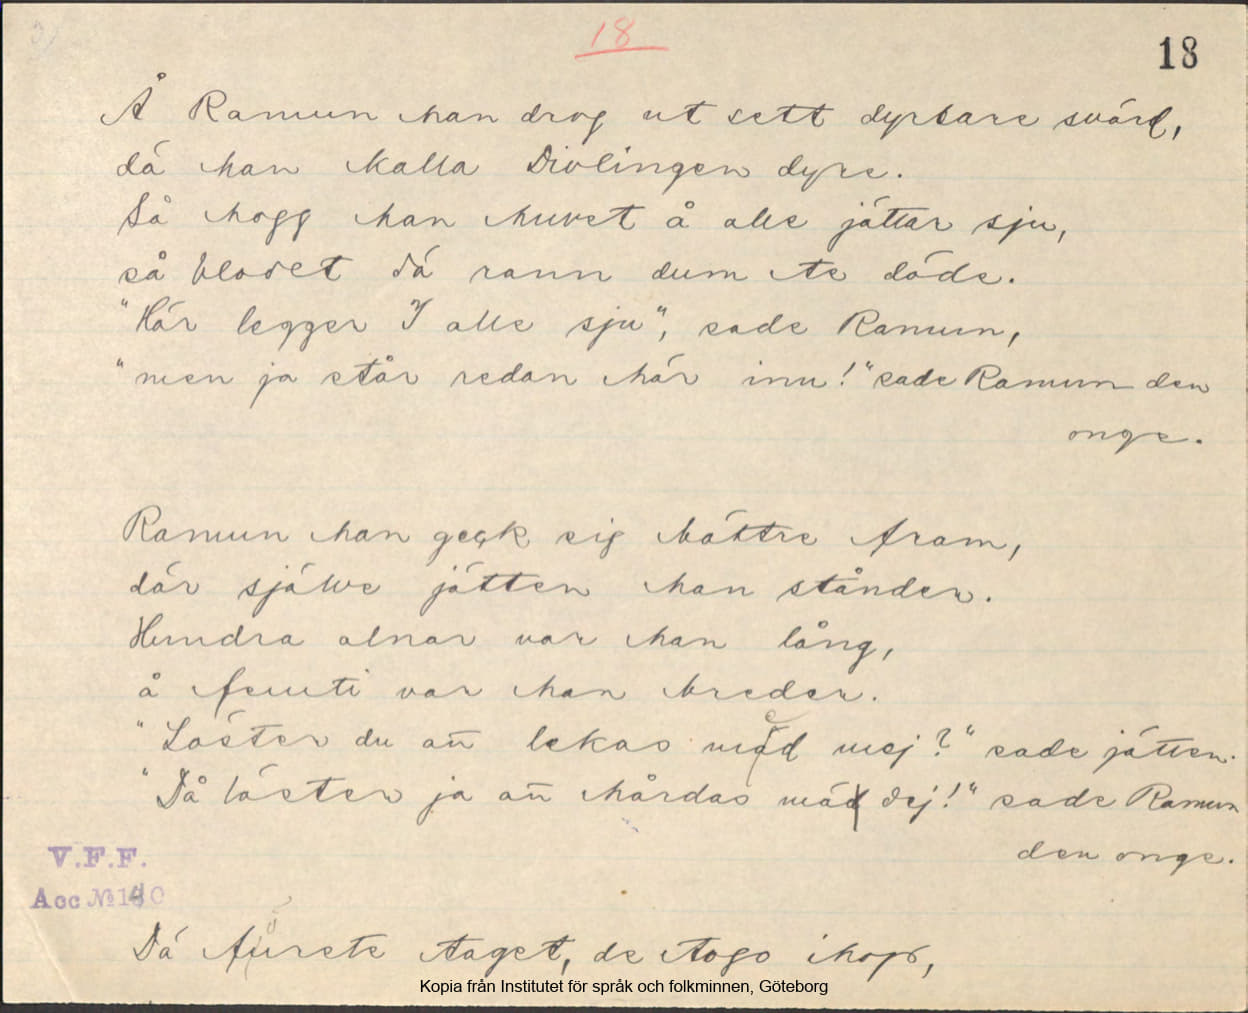 18
18
Å Ramun han drog ut sett dyrbare svärd,
dä han kalla Divlingen dyre.
Så hogg han huvet å alle jättar sju,
så blodet dä rann dum te döde.
"Här legger I alle sju", sade Ramun,
"men ja står redan här inu!" sade Ramun den
onge.
Ramun han geck sig bättre fram,
där sjálve jätten han stånder.
Hundra alnar var han lång,
å femti var han breder.
"Löster du añ lekas med mej?" sade jätten.
"Då löster ja añ hårdas mä dej!" sade Ramun
den onge.
V.F.F.
Acc № 140
Dä fürste taget, de togo ihop,
Kopia från Institutet för språk och folkminnen, Göteborg